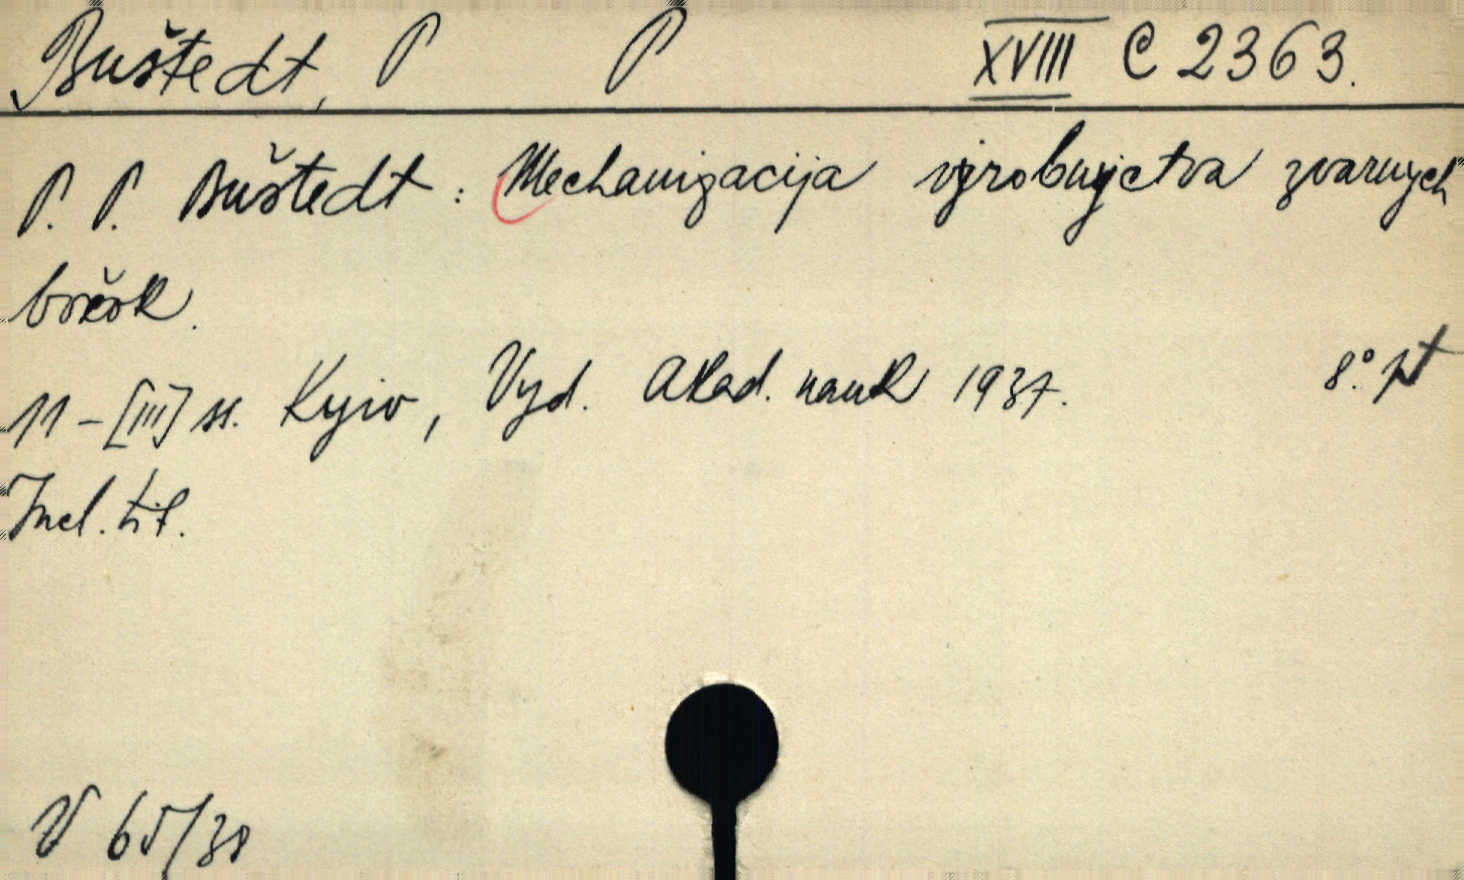 Buštedt, P P XVIII C 2363.
P. P. Buštedt : Mechanizacija vyrobnyctva zvarnych
bočok.
11 - [III] ss. Kyiv, Vyd. Akad. nauk 1937. 8°. pt
Incl. tit.
V 65/38